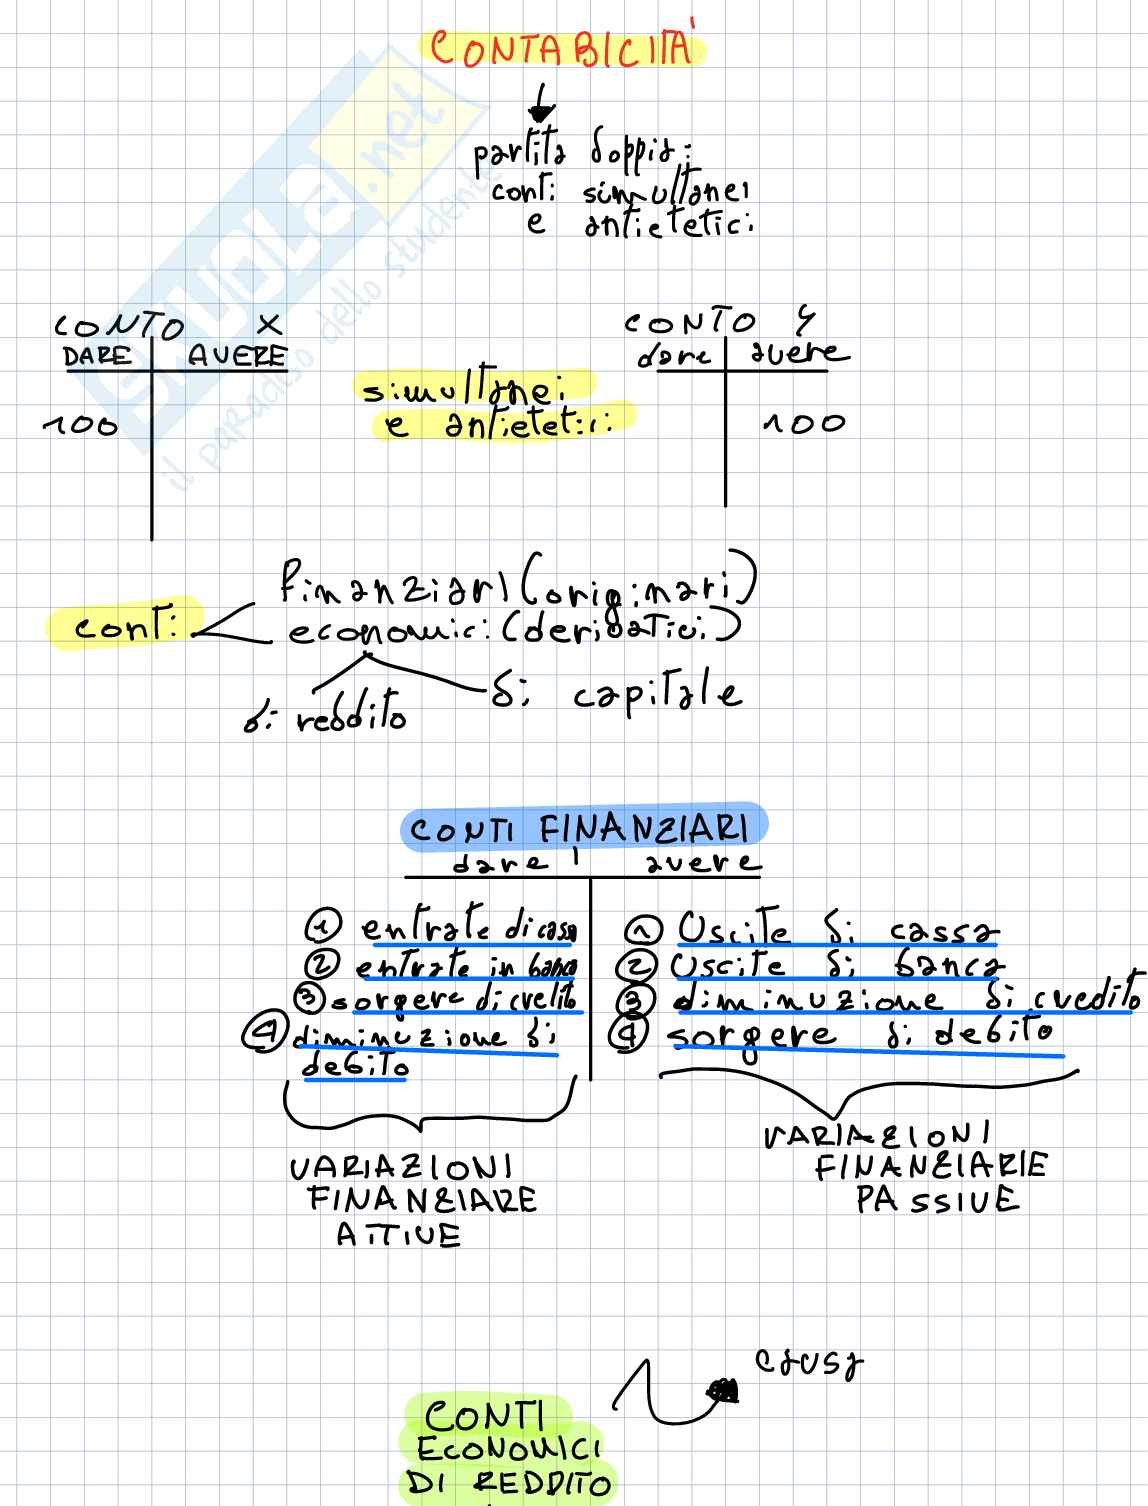 CONTABILITÀ
partita doppia:
conti simultanei
e antietetici
CONTO X
DARE AVERE
100
CONTO Y
dare avere
100
simultanei
e antietetici
conti
finanziari (originari)
economici (derivatici)
di reddito
di capitale
CONTI FINANZIARI
dare avere
1 entrate di cassa
2 entrate in banca
3 sorgere di credito
4 diminuzione di
debito
VARIAZIONI
FINANZIARE
ATTIVE
1 Uscite di cassa
2 Uscite di banca
3 diminuzione di credito
4 sorgere di debito
VARIAZIONI
FINANZIARIE
PASSIVE
causa
CONTI
ECONOMICI
DI REDDITO
SKUOLA.net
il paradiso dello studente